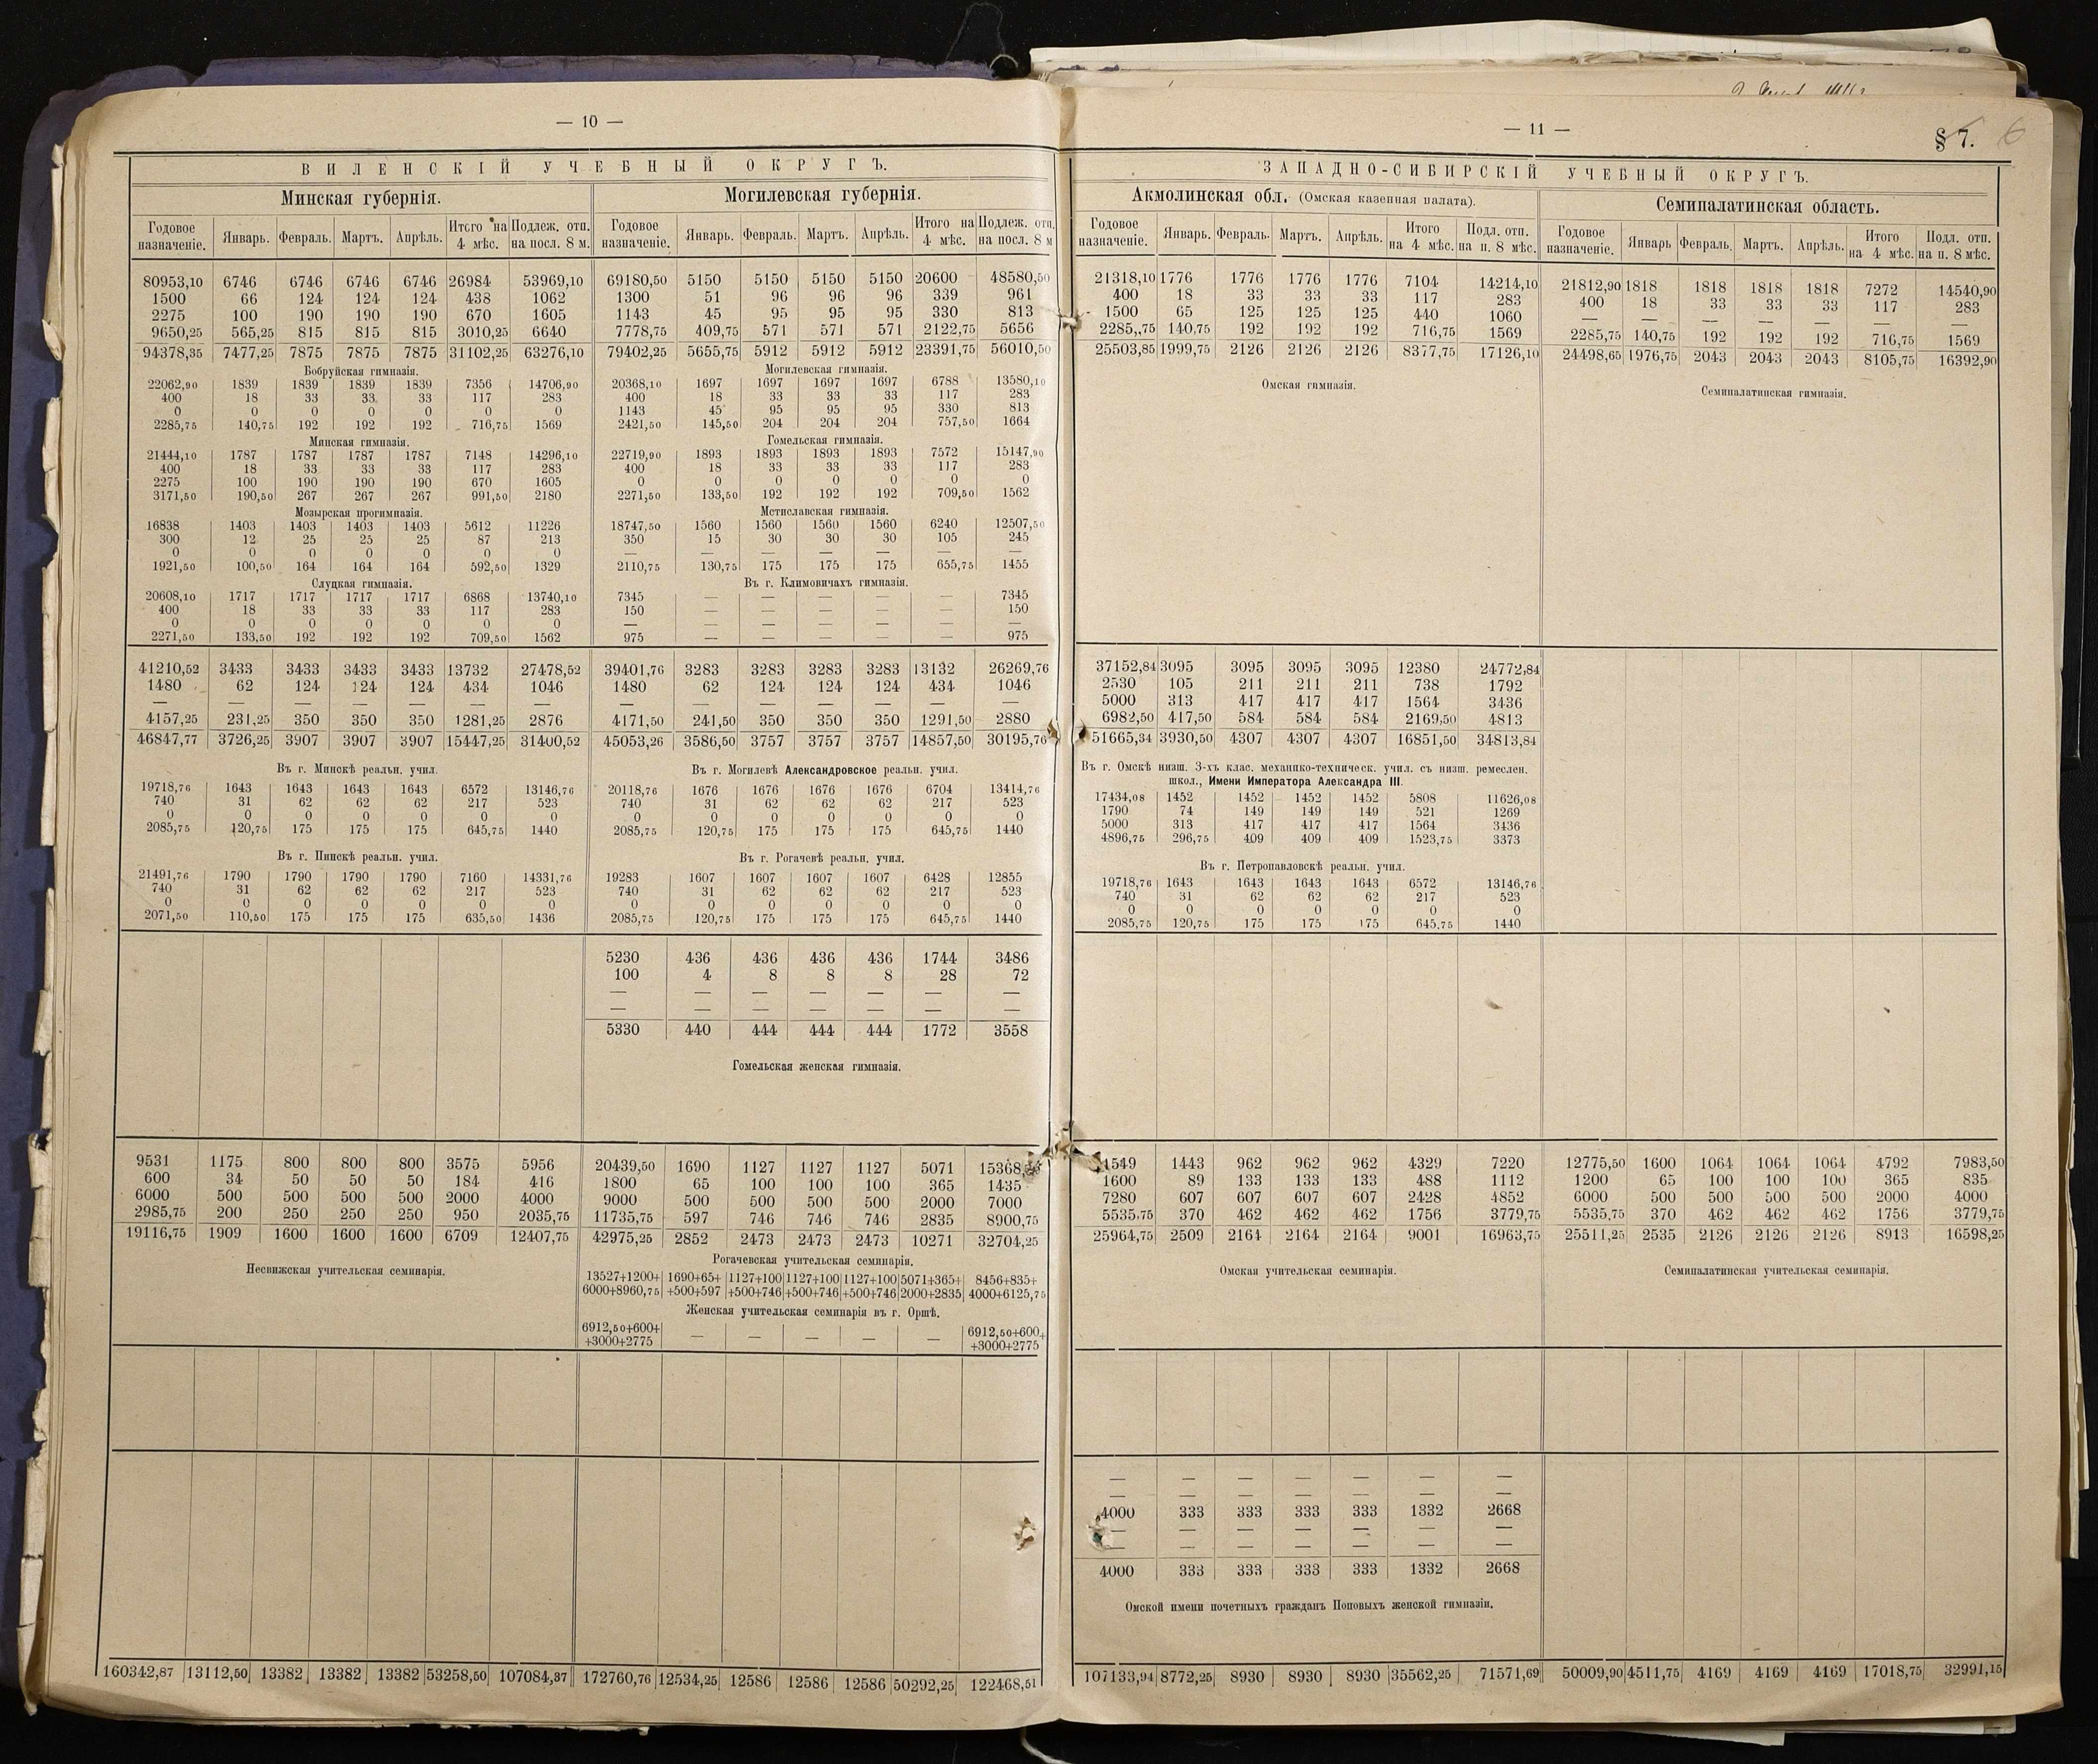 — 10 —
ВИЛЕНСКІЙ УЧЕБНЫЙ ОКРУГЪ.
Минская губернія. Могилевская губернія.
Годовое назначеніе. Январь. Февраль. Мартъ. Апрѣль. Итого на 4 мѣс. Подлеж. отп. на посл. 8 м. Годовое назначеніе. Январь. Февраль. Мартъ. Апрѣль. Итого на 4 мѣс. Подлеж. отп. на посл. 8 м
80953,10 6746 6746 6746 6746 26984 53969,10 69180,50 5150 5150 5150 5150 20600 48580,50
1500 66 124 124 124 438 1062 1300 51 96 96 96 339 961
2275 100 190 190 190 670 1605 1143 45 95 95 95 330 813
9650,25 565,25 815 815 815 3010,25 6640 7778,75 409,75 571 571 571 2122,75 5656
94378,35 7477,25 7875 7875 7875 31102,25 63276,10 79402,25 5655,75 5912 5912 5912 23391,75 56010,50
Бобруйская гимназія. Могилевская гимназія.
22062,90 1839 1839 1839 1839 7356 14706,90 20368,10 1697 1697 1697 1697 6788 13580,10
400 18 33 33 33 117 283 400 18 33 33 33 117 283
0 0 0 0 0 0 0 1143 45 95 95 95 330 813
2285,75 140,75 192 192 192 716,75 1569 2421,50 145,50 204 204 204 757,50 1664
Минская гимназія. Гомельская гимназія.
21444,10 1787 1787 1787 1787 7148 14296,10 22719,90 1893 1893 1893 1893 7572 15147,90
400 18 33 33 33 117 283 400 18 33 33 33 117 283
2275 100 190 190 190 670 1605 0 0 0 0 0 0 0
3171,50 190,50 267 267 267 991,50 2180 2271,50 133,50 192 192 192 709,50 1562
Мозырская прогимназія. Мстиславская гимназія.
16838 1403 1403 1403 1403 5612 11226 18747,50 1560 1560 1560 1560 6240 12507,50
300 12 25 25 25 87 213 350 15 30 30 30 105 245
0 0 0 0 0 0 0 — — — — — — —
1921,50 100,50 164 164 164 592,50 1329 2110,75 130,75 175 175 175 655,75 1455
Слуцкая гимназія. Въ г. Климовичахъ гимназія.
20608,10 1717 1717 1717 1717 6868 13740,10 7345 — — — — — 7345
400 18 33 33 33 117 283 150 — — — — — 150
0 0 0 0 0 0 0 — — — — — — —
2271,50 133,50 192 192 192 709,50 1562 975 — — — — — 975
41210,52 3433 3433 3433 3433 13732 27478,52 39401,76 3283 3283 3283 3283 13132 26269,76
1480 62 124 124 124 434 1046 1480 62 124 124 124 434 1046
— — — — — — — — — — — — — —
4157,25 231,25 350 350 350 1281,25 2876 4171,50 241,50 350 350 350 1291,50 2880
46847,77 3726,25 3907 3907 3907 15447,25 31400,52 45053,26 3586,50 3757 3757 3757 14857,50 30195,76
Въ г. Минскѣ реальн. учил. Въ г. Могилевѣ Александровское реальн. учил.
19718,76 1643 1643 1643 1643 6572 13146,76 20118,76 1676 1676 1676 1676 6704 13414,76
740 31 62 62 62 217 523 740 31 62 62 62 217 523
0 0 0 0 0 0 0 0 0 0 0 0 0 0
2085,75 120,75 175 175 175 645,75 1440 2085,75 120,75 175 175 175 645,75 1440
Въ г. Пинскѣ реальн. учил. Въ г. Рогачевѣ реальн. учил.
21491,76 1790 1790 1790 1790 7160 14331,76 19283 1607 1607 1607 1607 6428 12855
740 31 62 62 62 217 523 740 31 62 62 62 217 523
0 0 0 0 0 0 0 0 0 0 0 0 0 0
2071,50 110,50 175 175 175 635,50 1436 2085,75 120,75 175 175 175 645,75 1440
5230 436 436 436 436 1744 3486
100 4 8 8 8 28 72
— — — — — — —
— — — — — — —
5330 440 444 444 444 1772 3558
Гомельская женская гимназія.
9531 1175 800 800 800 3575 5956 20439,50 1690 1127 1127 1127 5071 15368
600 34 50 50 50 184 416 1800 65 100 100 100 365 1435
6000 500 500 500 500 2000 4000 9000 500 500 500 500 2000 7000
2985,75 200 250 250 250 950 2035,75 11735,75 597 746 746 746 2835 8900,75
19116,75 1909 1600 1600 1600 6709 12407,75 42975,25 2852 2473 2473 2473 10271 32704,25
Несвижская учительская семинарія. Рогачевская учительская семинарія.
13527+1200+ 1690+65+ 1127+100 1127+100 1127+100 5071+365+ 8456+835+
6000+8960,75 +500+597 +500+746 +500+746 +500+746 2000+2835 4000+6125,75
Женская учительская семинарія въ г. Оршѣ.
6912,50+600+ — — — — — 6912,50+600+
+3000+2775 +3000+2775
160342,87 13112,50 13382 13382 13382 53258,50 107084,37 172760,76 12534,25 12586 12586 12586 50292,25 122468,51
— 11 —
§ 7. 6
ЗАПАДНО-СИБИРСКІЙ УЧЕБНЫЙ ОКРУГЪ.
Акмолинская обл. (Омская казенная палата). Семипалатинская область.
Годовое назначеніе. Январь. Февраль. Мартъ. Апрѣль. Итого на 4 мѣс. Подл. отп. на п. 8 мѣс. Годовое назначеніе. Январь Февраль. Мартъ. Апрѣль. Итого на 4 мѣс. Подл. отп. на п. 8 мѣс.
21318,10 1776 1776 1776 1776 7104 14214,10 21812,90 1818 1818 1818 1818 7272 14540,90
400 18 33 33 33 117 283 400 18 33 33 33 117 283
1500 65 125 125 125 440 1060 — — — — — — —
2285,75 140,75 192 192 192 716,75 1569 2285,75 140,75 192 192 192 716,75 1569
25503,85 1999,75 2126 2126 2126 8377,75 17126,10 24498,65 1976,75 2043 2043 2043 8105,75 16392,90
Омская гимназія. Семипалатинская гимназія.
37152,84 3095 3095 3095 3095 12380 24772,84
2530 105 211 211 211 738 1792
5000 313 417 417 417 1564 3436
6982,50 417,50 584 584 584 2169,50 4813
51665,34 3930,50 4307 4307 4307 16851,50 34813,84
Въ г. Омскѣ низш. 3-хъ клас. механико-техническ. учил. съ низш. ремеслен.
школ., Имени Императора Александра III.
17434,08 1452 1452 1452 1452 5808 11626,08
1790 74 149 149 149 521 1269
5000 313 417 417 417 1564 3436
4896,75 296,75 409 409 409 1523,75 3373
Въ г. Петропавловскѣ реальн. учил.
19718,76 1643 1643 1643 1643 6572 13146,76
740 31 62 62 62 217 523
0 0 0 0 0 0 0
2085,75 120,75 175 175 175 645,75 1440
1549 1443 962 962 962 4329 7220 12775,50 1600 1064 1064 1064 4792 7983,50
1600 89 133 133 133 488 1112 1200 65 100 100 100 365 835
7280 607 607 607 607 2428 4852 6000 500 500 500 500 2000 4000
5535,75 370 462 462 462 1756 3779,75 5535,75 370 462 462 462 1756 3779,75
25964,75 2509 2164 2164 2164 9001 16963,75 25511,25 2535 2126 2126 2126 8913 16598,25
Омская учительская семинарія. Семипалатинская учительская семинарія.
— — — — — — —
— — — — — — —
4000 333 333 333 333 1332 2668
— — — — — — —
— — — — — — —
4000 333 333 333 333 1332 2668
Омской имени почетныхъ гражданъ Поповыхъ женской гимназіи.
107133,94 8772,25 8930 8930 8930 35562,25 71571,69 50009,90 4511,75 4169 4169 4169 17018,75 32991,15